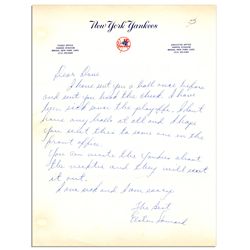 New York Yankees
Dear Dave
I have sent you a ball once before
and sent you back the check. I have
you sad over the playoffs. I don't
have any balls at all and I hope
You sent this to some one in the
front office.
You can write the Yankees about
the and they will sent
it out.
I am sad and I am sorry
The Best
Elston Howard